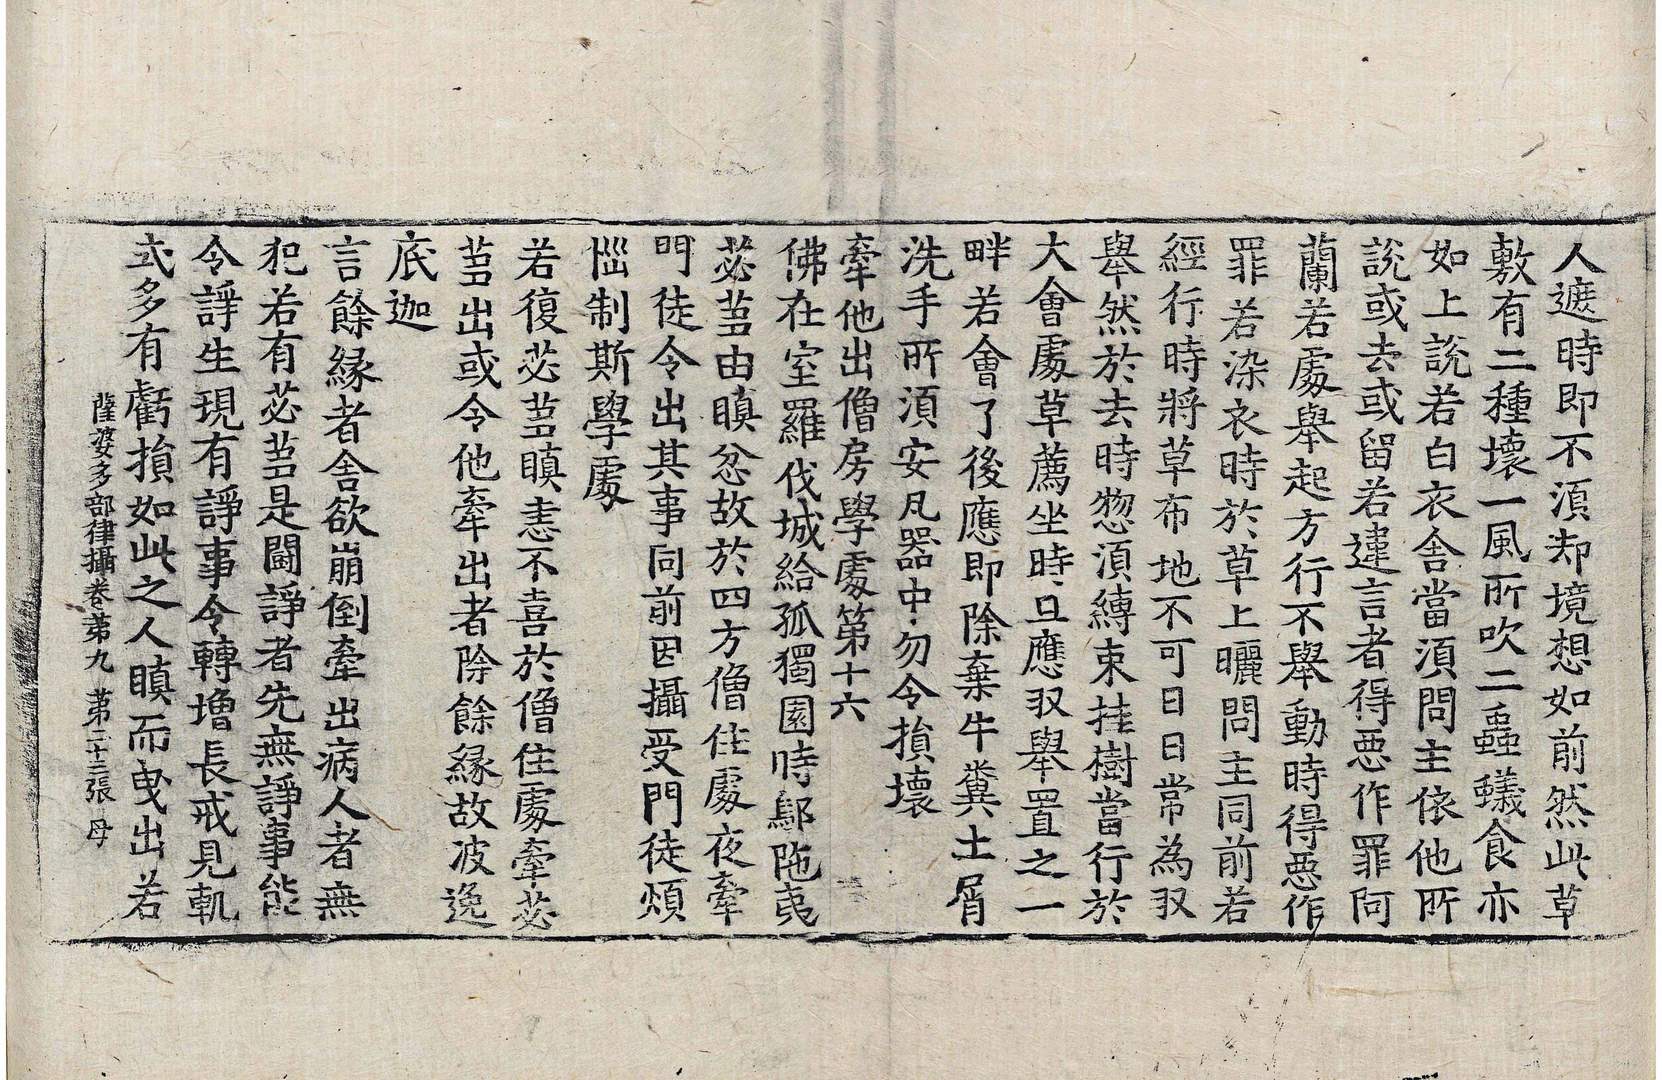 人遮時即不湏却境想如前然此草
敷有二種壞一風所吹二蟲蟻食亦
如上說若白衣舍當湏問主依他所
說或去或留若違言者得惡作罪阿
蘭若處舉起方行不舉動時得惡作
罪若染衣時於草上曬問主同前若
經行時將草布地不可日日常為収
舉然於去時惣湏縛束挂樹當行於
大會處草薦坐時且應収舉置之一
畔若會了後應即除棄牛糞土屑
洗手所湏安凡器中勿令損壞
牽他出僧房學處第十六
佛在室羅伐城給孤獨園時鄔陁夷
苾芻由瞋忿故於四方僧住處夜牽
門徒令出其事同前因攝受門徒煩
惱制斯學處
若復苾芻瞋恚不喜於僧住處牽苾
芻出或令他牽出者除餘緣故波逸
底迦
言餘緣者舍欲崩倒牽出病人者無
犯若有苾芻是鬪諍者先無諍事能
令諍生現有諍事令轉增長戒見軌
式多有虧損如此之人瞋而曳出若
薩婆多部律攝卷苐九 苐二十三張 母